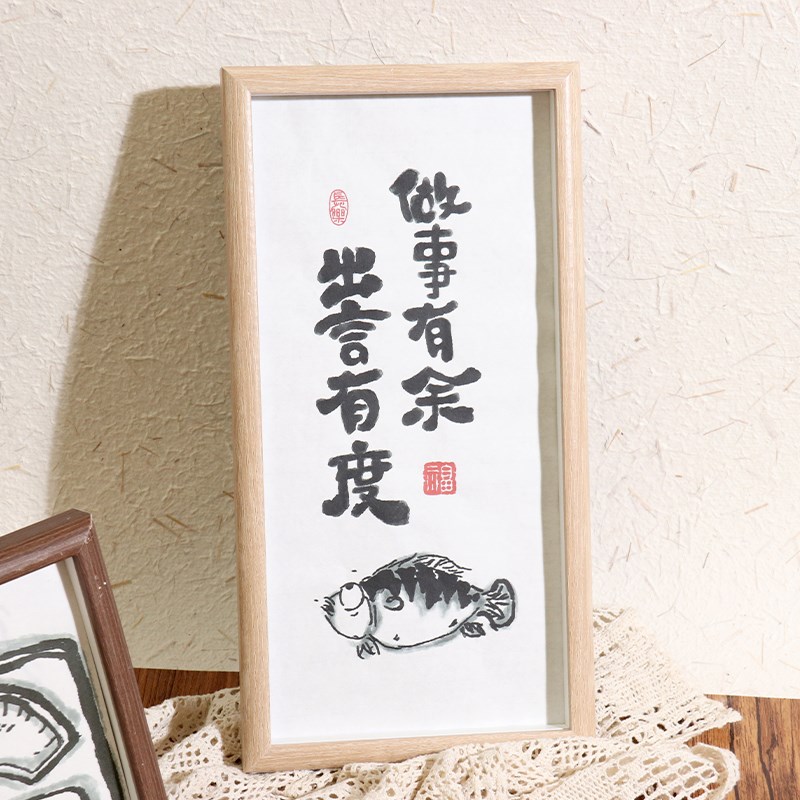 做事有余
出言有度
長樂
福